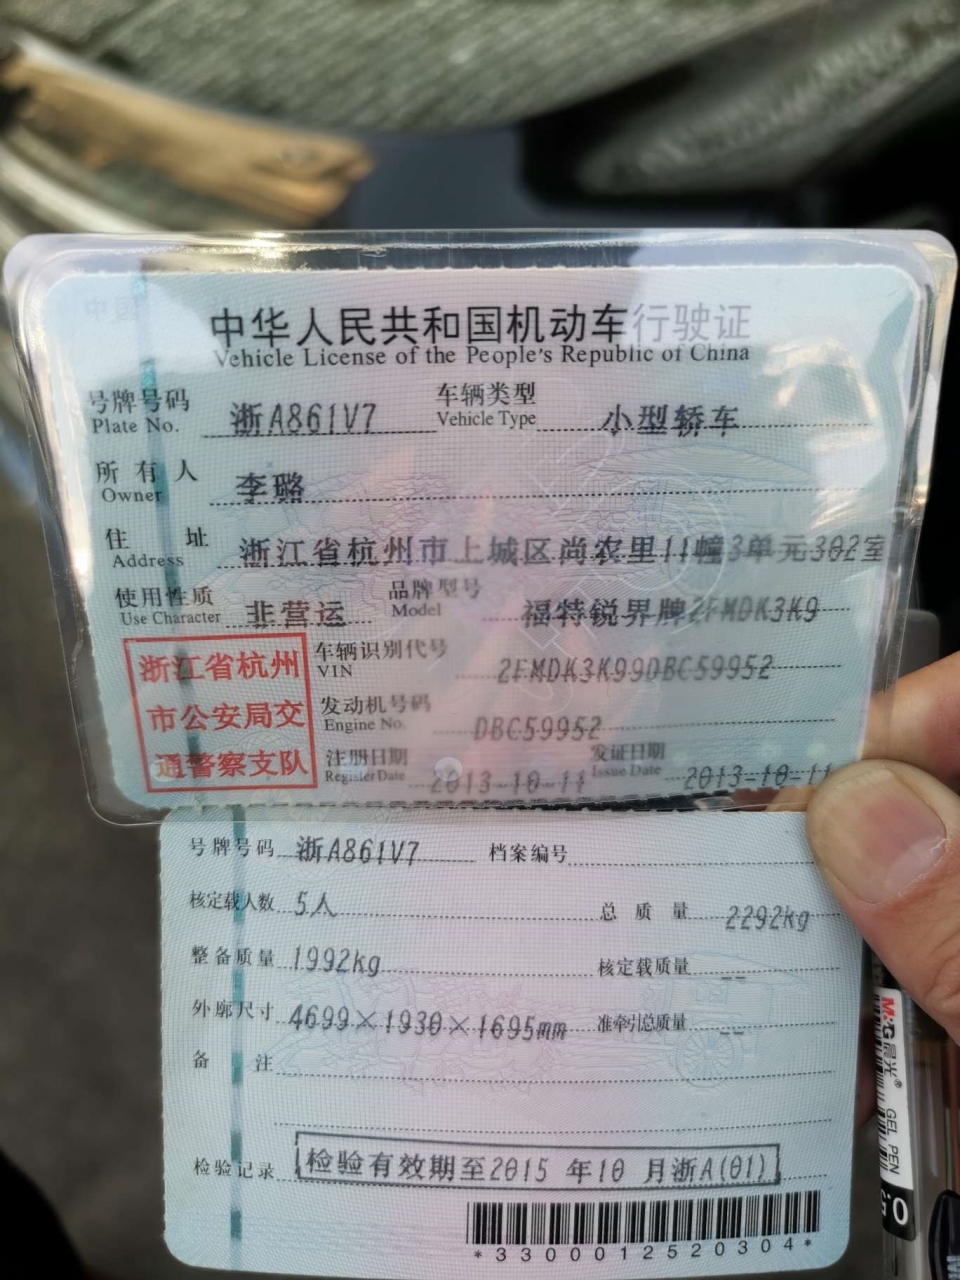 中华人民共和国机动车行驶证
Vehicle License of the People's Republic of China
号牌号码 浙A861V7 车辆类型 小型轿车
Plate No. Vehicle Type
所有人 李璐
Owner
住址 浙江省杭州市上城区尚农里11幢3单元302室
Address
使用性质 非营运 品牌型号 福特锐界牌2FMDK3K9
Use Character Model
浙江省杭州
市公安局交
通警察支队
车辆识别代号 2FMDK3K99DBC59952
VIN
发动机号码 DBC59952
Engine No.
注册日期 2013-10-11 发证日期 2013-10-11
Register Date Issue Date
号牌号码 浙A861V7 档案编号
核定载人数 5人 总质量 2292kg
整备质量 1992kg 核定载质量 --
外廓尺寸 4699×1930×1695mm 准牵引总质量 --
备注
检验记录 检验有效期至2015年10月浙A(01)
*3300012520304*
M&G晨光® GEL PEN
0.5